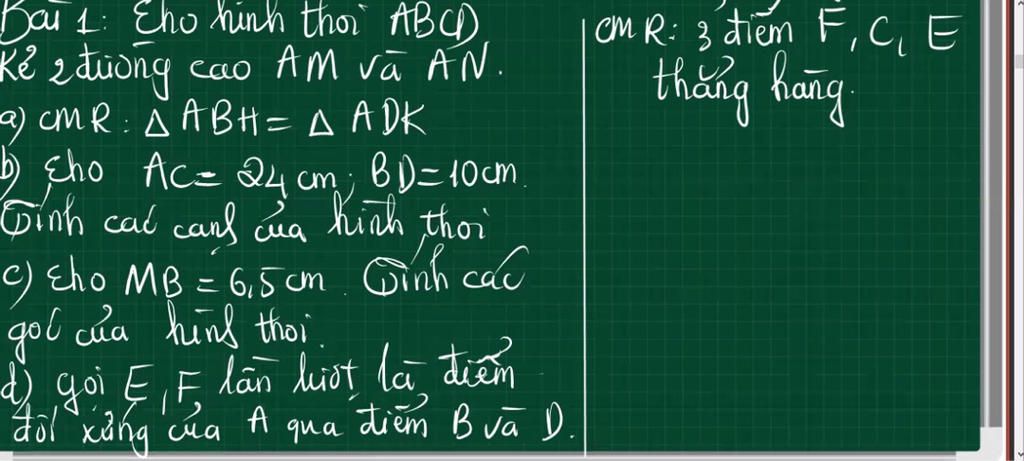 Bài 1: Cho hình thoi ABCD
Kẻ 2 đường cao AM và AN.
a) CMR: Δ ABH = Δ ADK
b) Cho AC = 24 cm; BD = 10 cm.
Tính các cạnh của hình thoi
c) Cho MB = 6,5 cm. Tính các
góc của hình thoi.
d) gọi E, F lần lượt là điểm
đối xứng của A qua điểm B và D.
CMR: 3 điểm F, C, E
thẳng hàng.